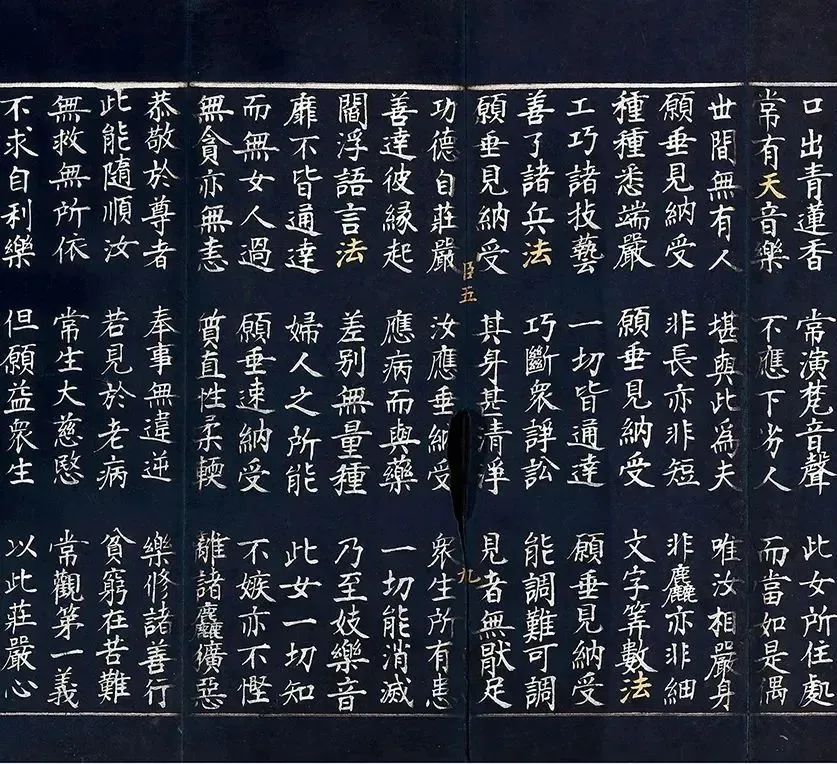 口出青蓮香 常演梵音聲 此女所住處
常有天音樂 不應下劣人 而當如是偶
世間無有人 堪與此為夫 唯汝相嚴身
願垂見納受 非長亦非短 非麤亦非細
種種悉端嚴 願垂見納受 文字筭數法
工巧諸技藝 一切皆通達 願垂見納受
善了諸兵法 巧斷衆諍訟 能調難可調
願垂見納受 其身甚清淨 見者無厭足
臣五 九
功德自莊嚴 汝應垂納受 衆生所有患
善達彼緣起 應病而與藥 一切能消滅
閻浮語言法 差別無量種 乃至妓樂音
靡不皆通達 婦人之所能 此女一切知
而無女人過 願垂速納受 不嫉亦不慳
無貪亦無恚 質直性柔輭 離諸麤獷惡
恭敬於尊者 奉事無違逆 樂修諸善行
此能隨順汝 若見於老病 貧窮在苦難
無救無所依 常生大慈愍 常觀第一義
不求自利樂 但願益衆生 以此莊嚴心